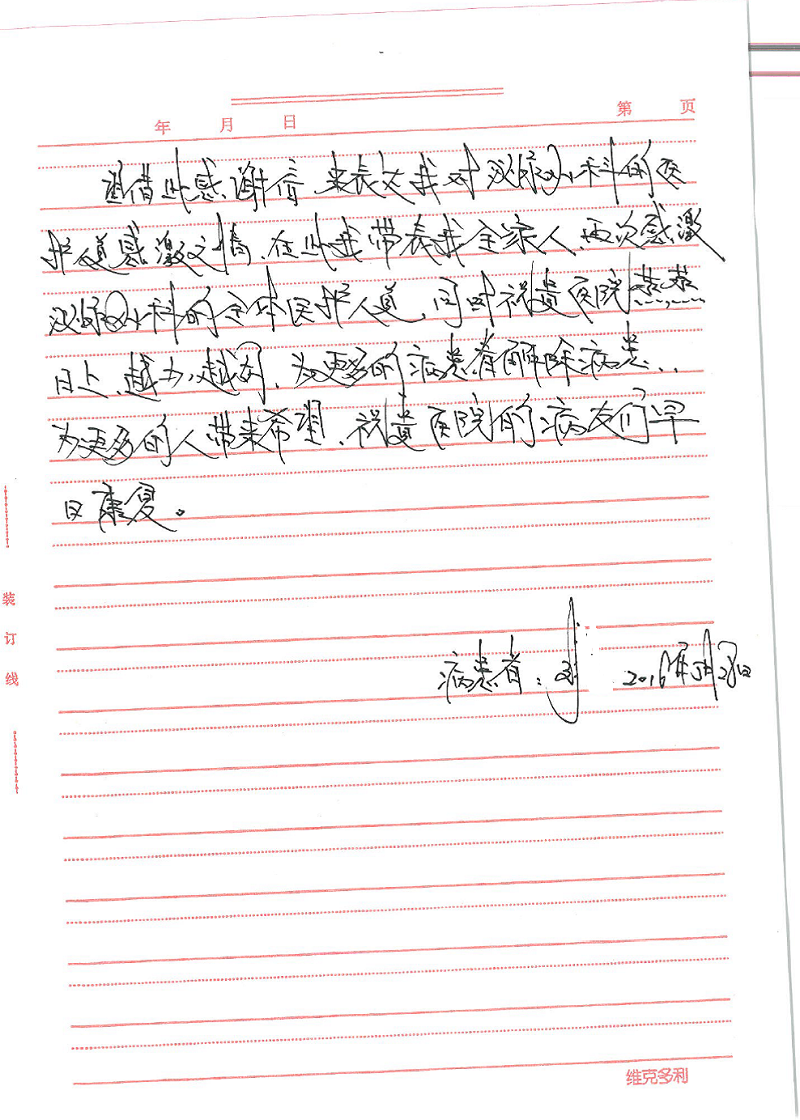 年 月 日 第 页
谨借此感谢信,来表达我对泌尿外科的医
护人员感激之情,在此我带表我全家人,再次感激
泌尿外科的全体医护人员,同时祝贵医院蒸蒸
日上,越办越好,为更多的病患者解除病患,
为更多的人带来希望,祝贵医院的病友们早
日康复。
装
订
线
病患者:刘 2016年
维克多利